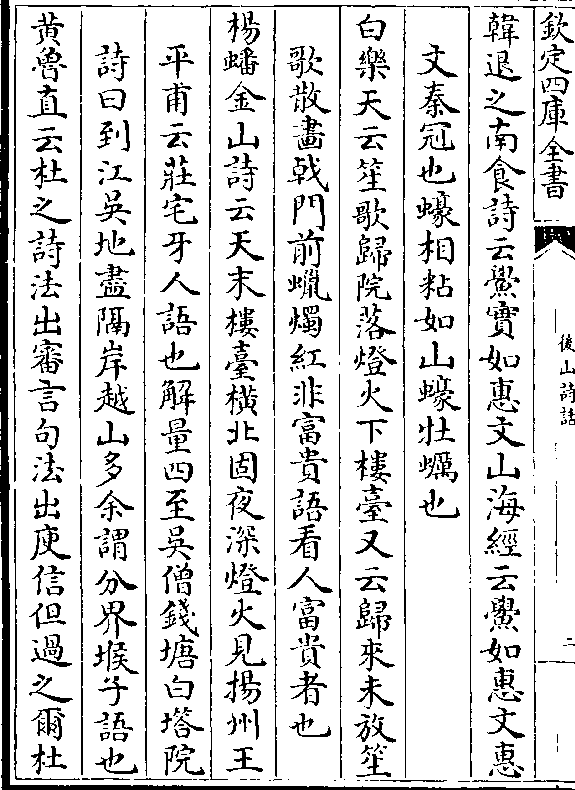 欽定四庫全書
後山詩話
二
韓退之南食詩云鱟實如惠文山海經云鱟如惠文惠
文秦冠也蠔相粘如山蠔牡蠣也
白樂天云笙歌歸院落燈火下樓臺又云歸來未放笙
歌散畫戟門前蠟燭紅非富貴語看人富貴者也
楊蟠金山詩云天末樓臺橫北固夜深燈火見揚州王
平甫云莊宅牙人語也解量四至吳僧錢塘白塔院
詩曰到江吳地盡隔岸越山多余謂分界堠子語也
黄魯直云杜之詩法出審言句法出庾信但過之爾杜